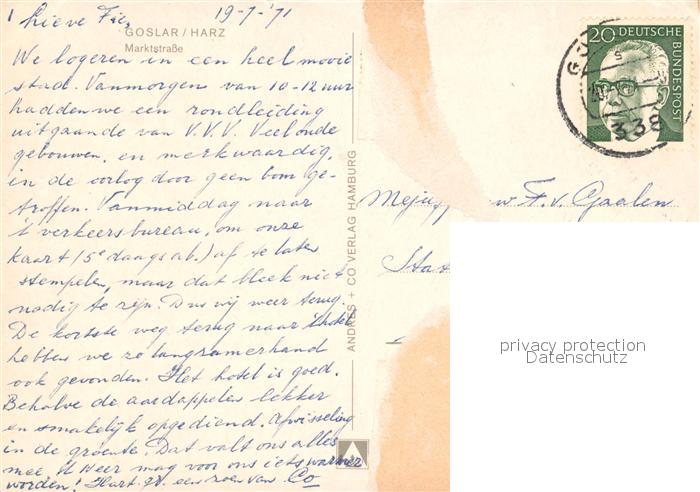 19-7-'71
Lieve Fie,
GOSLAR / HARZ
Marktstraße
We logeren in een heel mooie
stad. Vanmorgen van 10-12 uur
hadden we een rondleiding
uitgaande van V.V.V. Veel oude
gebouwen, en merkwaardig,
in de oorlog door geen bom ge-
troffen. Vanmiddag naar
't verkeersbureau, om onze
kaart (5e daagsab.) af te laten
stempelen, maar dat bleek niet
nodig te zijn. Dus wij weer terug.
De kortste weg terug naar 't hotel
hebben we zo langzamerhand
ook gevonden. Het hotel is goed.
Behalve de aardappelen lekker
en smakelijk opgediend. Afwisseling
in de groente. Dat valt ons alles
mee. 't Weer mag voor ons iets warmer
worden! Hart. gr. een zoen van Co
ANDRES + CO VERLAG HAMBURG
20 DEUTSCHE
BUNDESPOST
338
Mej w F. v. Gaalen
Stat
privacy protection
Datenschutz